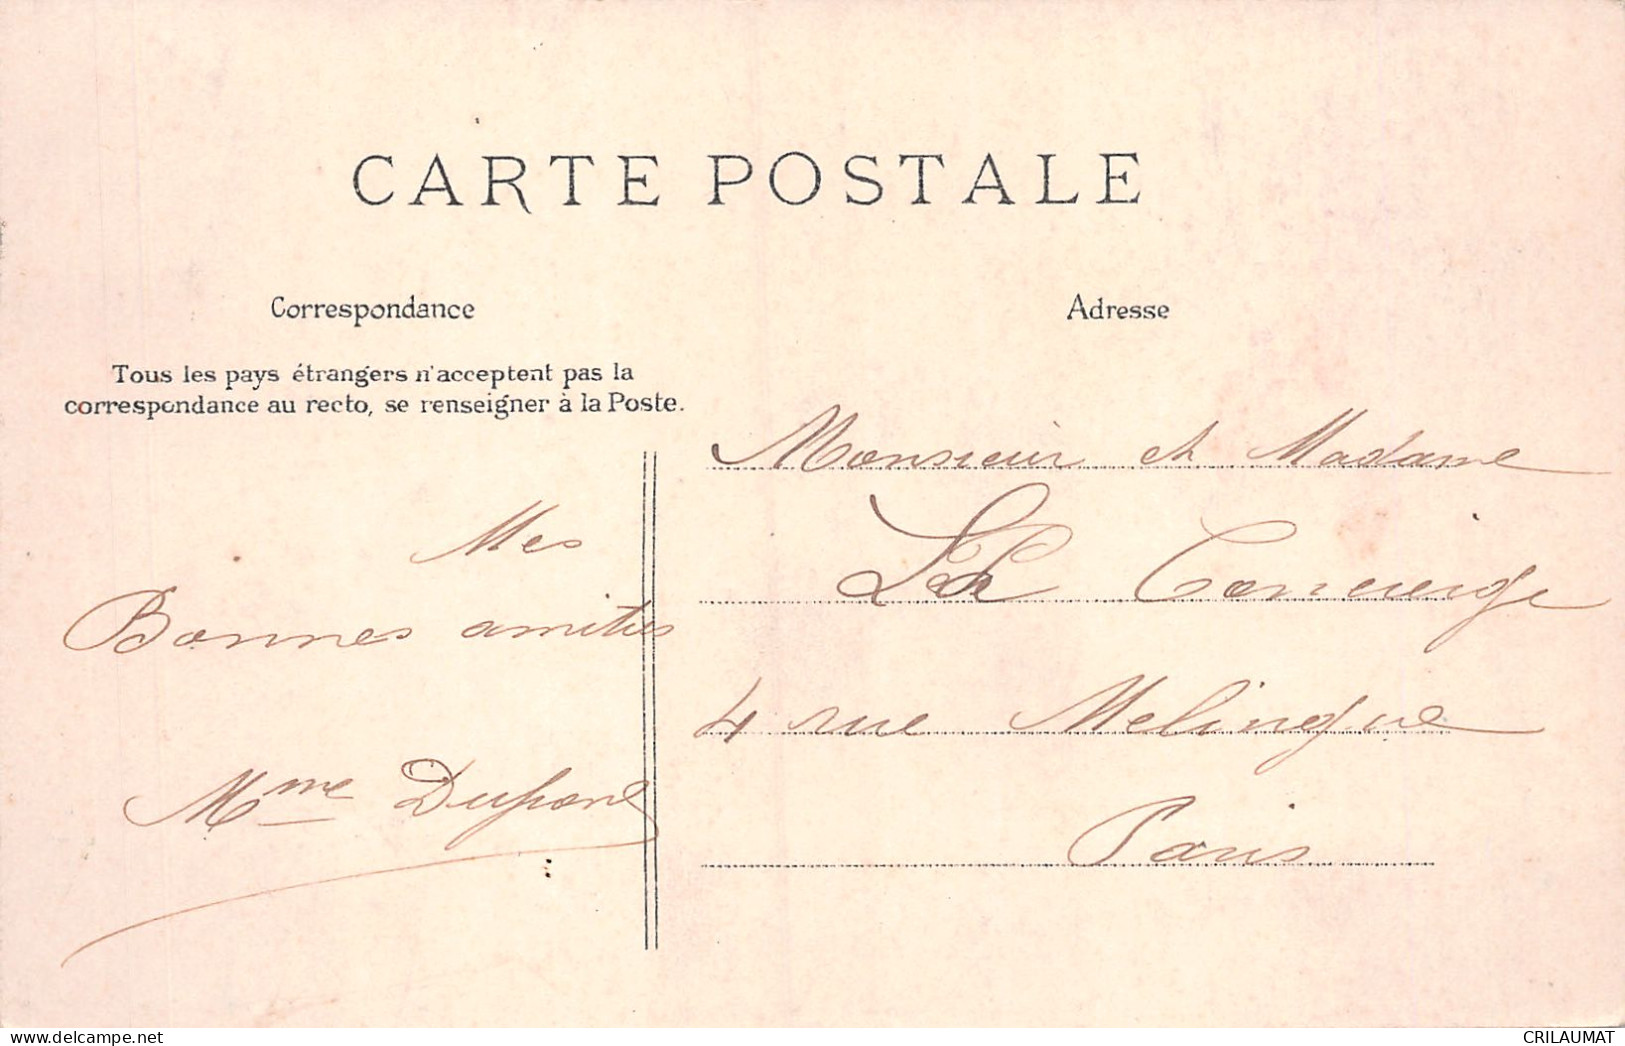 CARTE POSTALE
Correspondance
Adresse
Tous les pays étrangers n'acceptent pas la
correspondance au recto, se renseigner à la Poste.
Mes
Bonnes amitiés
Mme Dupont
Monsieur et Madame
La Concierge
4 rue Melingue
Paris
www.delcampe.net
CRILAUMAT